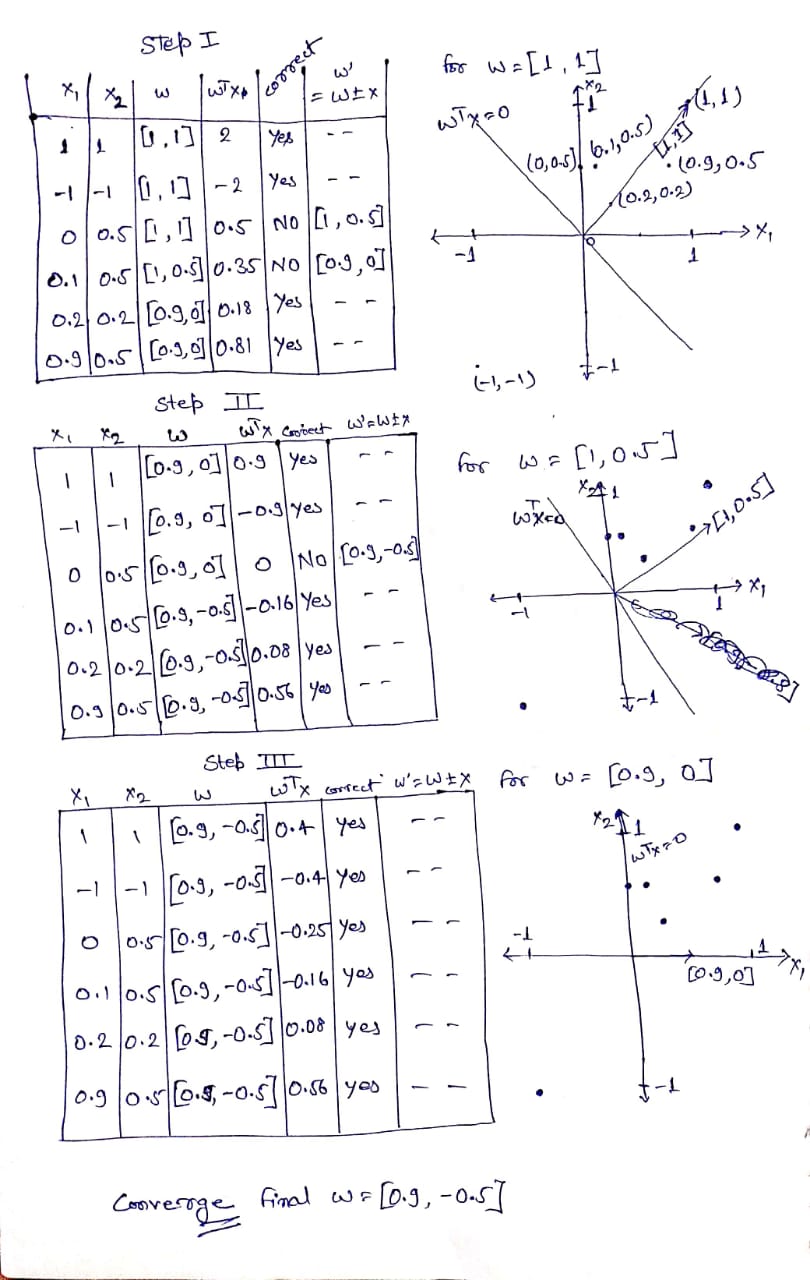 Step I
x₁ x₂ w wᵀx correct w' = w±x
1 1 [1,1] 2 Yes --
-1 -1 [1,1] -2 Yes --
0 0.5 [1,1] 0.5 NO [1,0.5]
0.1 0.5 [1,0.5] 0.35 NO [0.9,0]
0.2 0.2 [0.9,0] 0.18 Yes --
0.9 0.5 [0.9,0] 0.81 Yes --
for w=[1,1]
x₂
1
wᵀx=0
(1,1)
(0,0.5)
(0.1,0.5)
[1,1]
(0.9,0.5
(0.2,0.2)
-1
0
1
x₁
(-1,-1)
-1
Step II
x₁ x₂ w wᵀx correct w'=w±x
1 1 [0.9,0] 0.9 Yes --
-1 -1 [0.9,0] -0.9 Yes --
0 0.5 [0.9,0] 0 No [0.9,-0.5]
0.1 0.5 [0.9,-0.5] -0.16 Yes --
0.2 0.2 [0.9,-0.5] 0.08 Yes --
0.9 0.5 [0.9,-0.5] 0.56 Yes --
for w = [1,0.5]
x₂ 1
wᵀx=0
[1,0.5]
-1
1
x₁
-1
Step III
x₁ x₂ w wᵀx correct w'=w±x
1 1 [0.9,-0.5] 0.4 Yes --
-1 -1 [0.9,-0.5] -0.4 Yes --
0 0.5 [0.9,-0.5] -0.25 Yes --
0.1 0.5 [0.9,-0.5] -0.16 Yes --
0.2 0.2 [0.9,-0.5] 0.08 yes --
0.9 0.5 [0.9,-0.5] 0.56 yes --
for w = [0.9, 0]
x₂ 1
wᵀx=0
-1
1
[0.9,0]
x₁
-1
Converge final w = [0.9, -0.5]